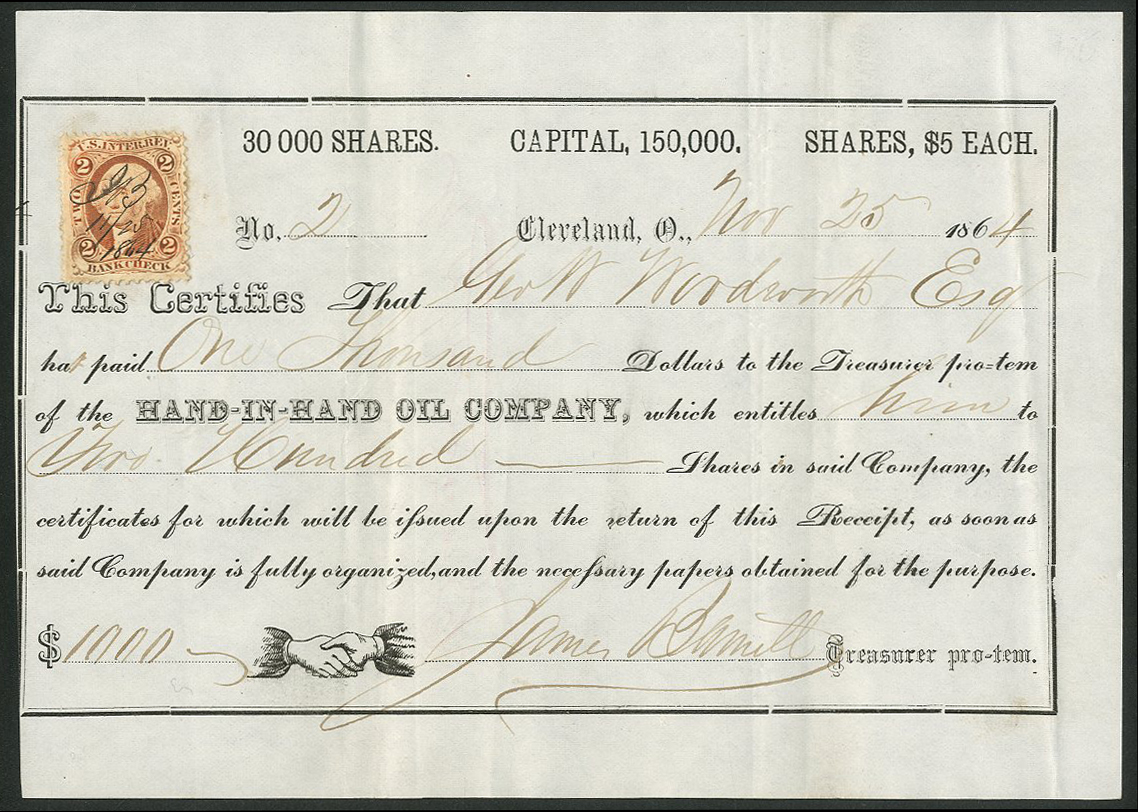 30 000 SHARES. CAPITAL, 150,000. SHARES, $5 EACH.
U.S. INTER. REV.
2 2
TWO CENTS
JB
11/25
1864
2 2
BANK CHECK
No. 2 Cleveland, O., Nov 25 1864
This Certifies That Geo W Woodworth Esq
has paid One Thousand Dollars to the Treasurer pro=tem
of the HAND-IN-HAND OIL COMPANY, which entitles him to
Two Hundred Shares in said Company, the
certificates for which will be iſsued upon the return of this Receipt, as soon as
said Company is fully organized, and the neceſsary papers obtained for the purpose.
$1000 James Treasurer pro-tem.